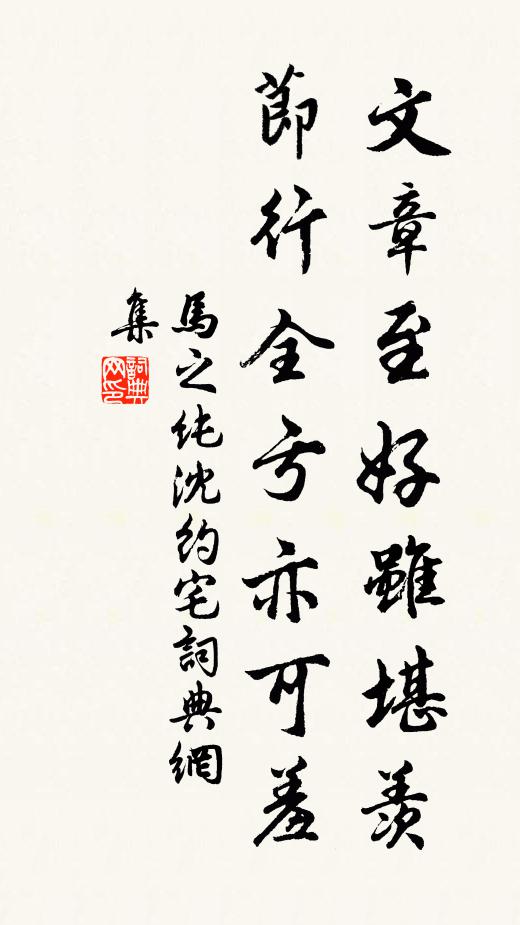 文章至好雖堪羨
節行全亏亦可羞
馬之纯沈約宅詞典網
集
詞典
网印